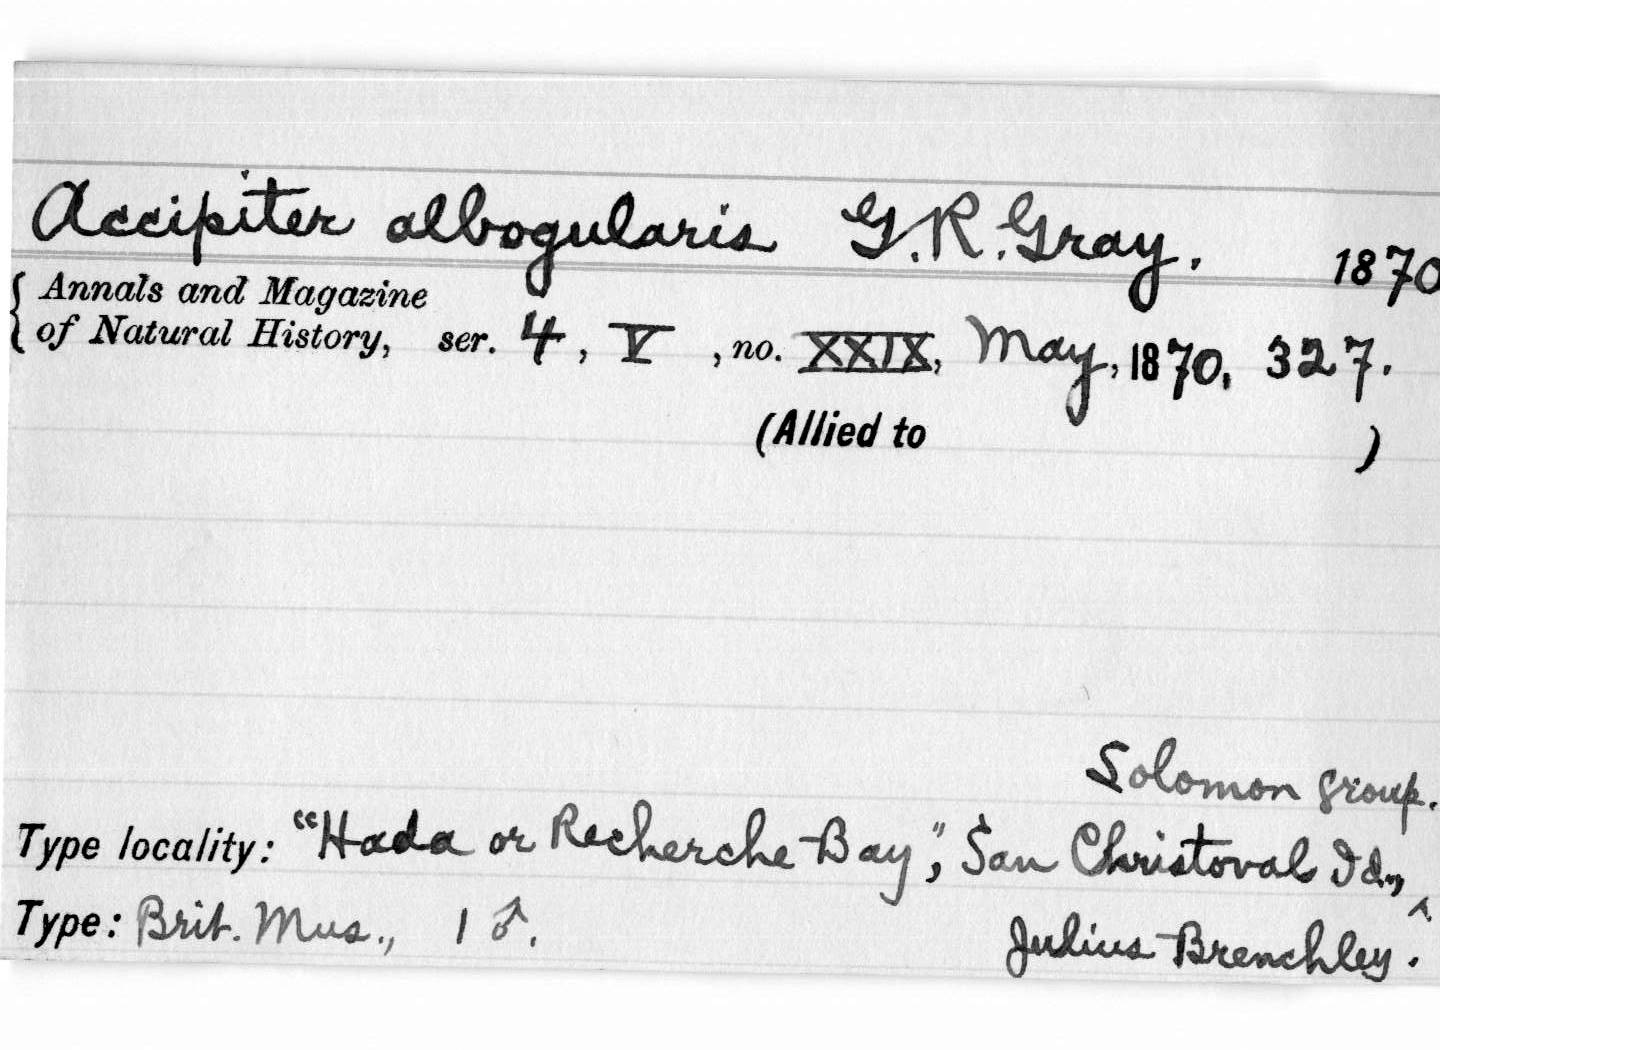 Accipiter albogularis G.R. Gray. 1870
{ Annals and Magazine
of Natural History, ser. 4, V, no. XXIX, May, 1870, 327.
(Allied to )
Solomon group.
Type locality: "Hada or Recherche Bay", San Christoval Id., ^
Type: Brit. Mus., 1 ♂. Julius Brenchley.